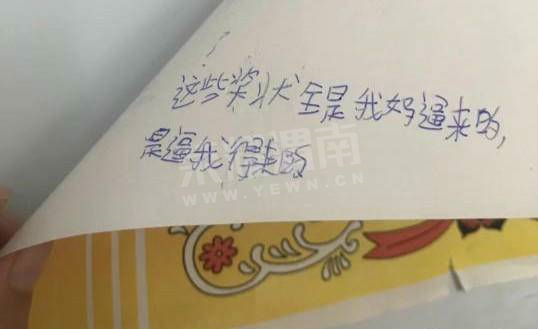 这些奖状全是我妈逼来的,
是逼我得来的
WWW.YEWN.CN